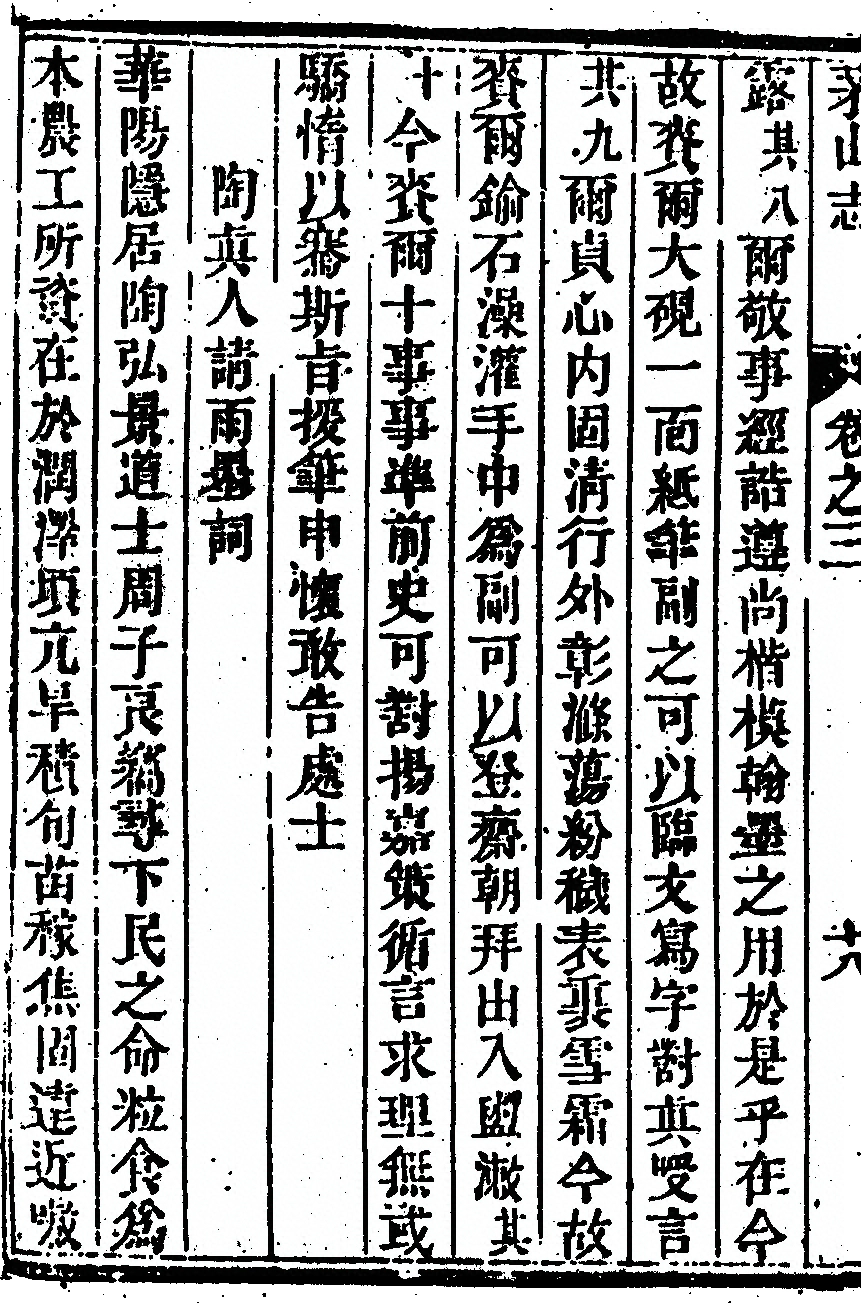 茅山志 卷之三 十八
露其八爾敬事經誥遵尚楷模翰墨之用於是乎在今
故賚爾大硯一面紙筆副之可以臨文寫字對真受言
其九爾貞心内固清行外彰滌蕩粉穢表裏雪霜今故
賚爾鍮石澡灌手巾爲副可以登齋朝拜出入盥漱其
十今賚爾十事事準前史可對揚嘉策循言求理無或
驕惰以爽斯旨援筆申懷敢告處士
陶真人請雨墨詞
華陽隱居陶弘景道士周子良稽尋下民之命粒食爲
本農工所資在於潤澤頃亢旱積旬苗稼焦涸遠近嗷